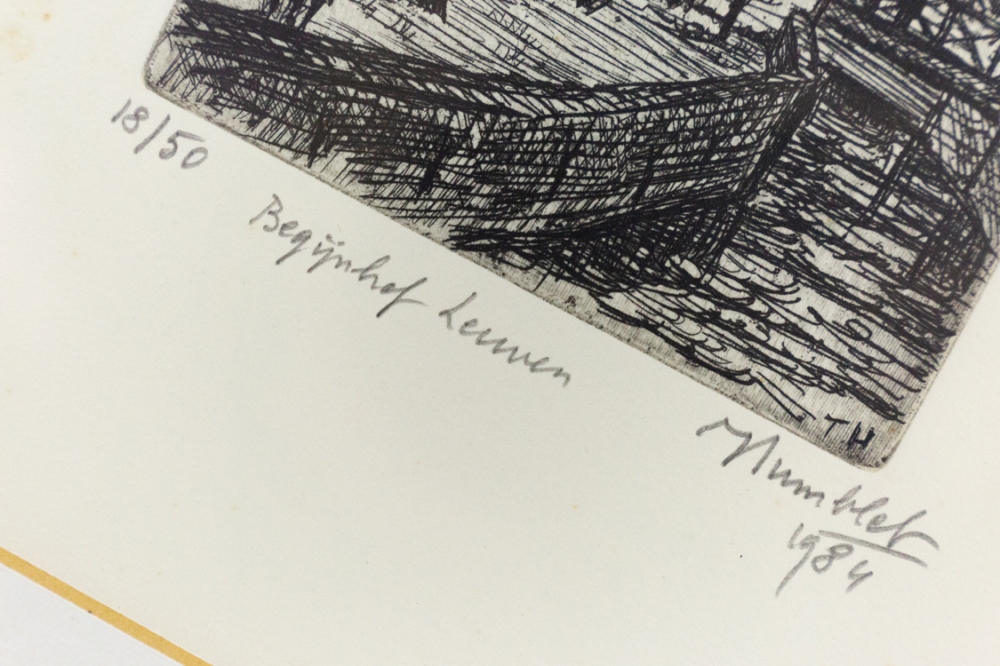 18/50
Begijnhof Leuven
TH
THumblet
1984